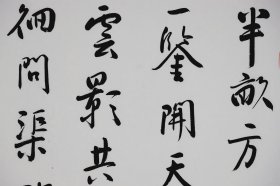 半畝方
一鑒開天
雲影共
徊問渠